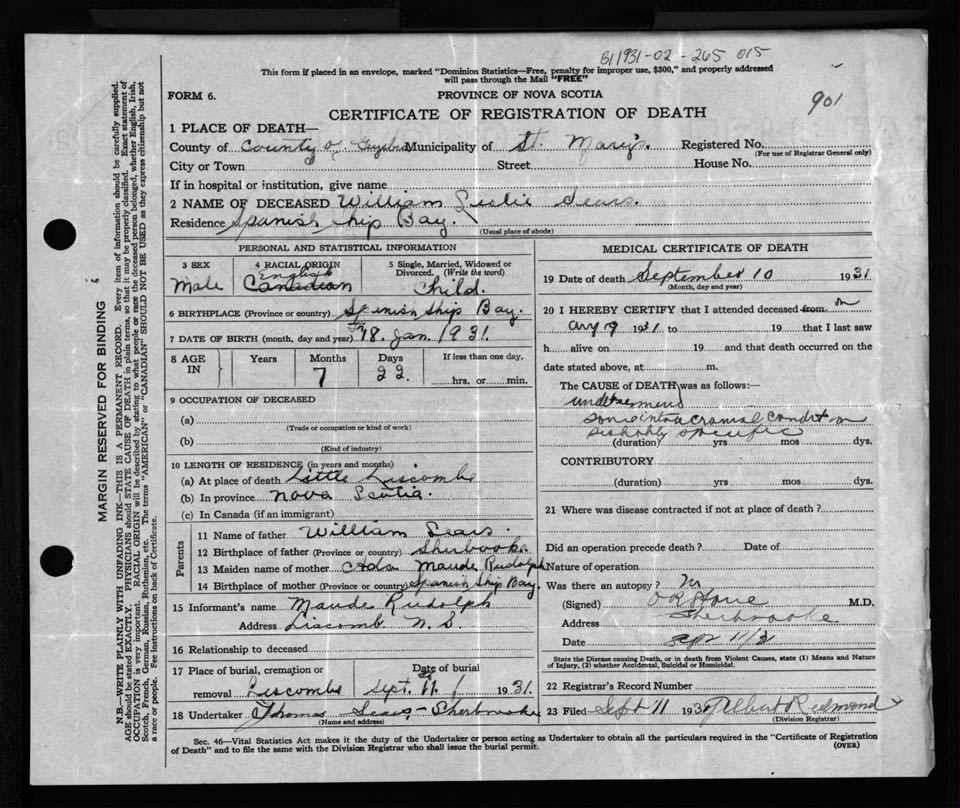 B11931-02-265 015
This form if placed in an envelope, marked "Dominion Statistics—Free, penalty for improper use, $300," and properly addressed
will pass through the Mail "FREE"
901
FORM 6.
PROVINCE OF NOVA SCOTIA
CERTIFICATE OF REGISTRATION OF DEATH
1 PLACE OF DEATH—
County of County of Guysboro Municipality of St. Mary's. Registered No.
(For use of Registrar General only)
City or Town Street House No.
If in hospital or institution, give name
2 NAME OF DECEASED William Leslie Sears.
Residence Spanish Ship Bay.
(Usual place of abode)
PERSONAL AND STATISTICAL INFORMATION
3 SEX
Male
4 RACIAL ORIGIN
English
Canadian
5 Single, Married, Widowed or
Divorced. (Write the word)
Child.
6 BIRTHPLACE (Province or country) Spanish Ship Bay.
7 DATE OF BIRTH (month, day and year) 18. Jan. 1931.
8 AGE
IN
Years Months Days If less than one day,
7 22. hrs. or min.
9 OCCUPATION OF DECEASED
(a)
(Trade or occupation or kind of work)
(b)
(Kind of industry)
10 LENGTH OF RESIDENCE (in years and months)
(a) At place of death Little Liscombe
(b) In province Nova Scotia.
(c) In Canada (if an immigrant)
Parents
11 Name of father William Sears.
12 Birthplace of father (Province or country) Sherbrooke.
13 Maiden name of mother Ada Maude Rudolph
14 Birthplace of mother (Province or country) Spanish Ship Bay.
15 Informant's name Maude Rudolph
Address Liscomb N.S.
16 Relationship to deceased
17 Place of burial, cremation or Date of burial
removal Liscombe Sept. 11 1931.
18 Undertaker Thomas Sears - Sherbrooke
(Name and address)
MEDICAL CERTIFICATE OF DEATH
19 Date of death September 10 1931
(Month, day and year)
20 I HEREBY CERTIFY that I attended deceased from on
Aug 9 1931 to 19 that I last saw
h alive on 19 and that death occurred on the
date stated above, at m.
The CAUSE of DEATH was as follows:—
undetermined
some intracranial condition
specific
(duration) yrs mos dys.
CONTRIBUTORY
(duration) yrs mos dys.
21 Where was disease contracted if not at place of death?
Did an operation precede death? Date of
Nature of operation
Was there an autopsy? No
(Signed) M.D.
Address Sherbrooke
Date Sep 11/31
State the Disease causing Death, or in death from Violent Causes, state (1) Means and Nature
of Injury, (2) whether Accidental, Suicidal or Homicidal.
22 Registrar's Record Number
23 Filed Sept 11 1931 Albert Redmond
(Division Registrar)
Sec. 46—Vital Statistics Act makes it the duty of the Undertaker or person acting as Undertaker to obtain all the particulars required in the "Certificate of Registration
of Death" and to file the same with the Division Registrar who shall issue the burial permit.
(OVER)
MARGIN RESERVED FOR BINDING
N.B.—WRITE PLAINLY WITH UNFADING INK—THIS IS A PERMANENT RECORD. Every item of information should be carefully supplied.
AGE should be stated EXACTLY. PHYSICIANS should STATE CAUSE OF DEATH in plain terms, so that it may be properly classified. Exact statement of
OCCUPATION is very important. RACIAL ORIGIN will be described by stating to what people or race the deceased person belonged, whether English, Irish,
Scotch, French, German, Russian, Ruthenian, etc. The terms "AMERICAN" or "CANADIAN" SHOULD NOT BE USED as they express citizenship but not
a race or people. See instructions on back of Certificate.